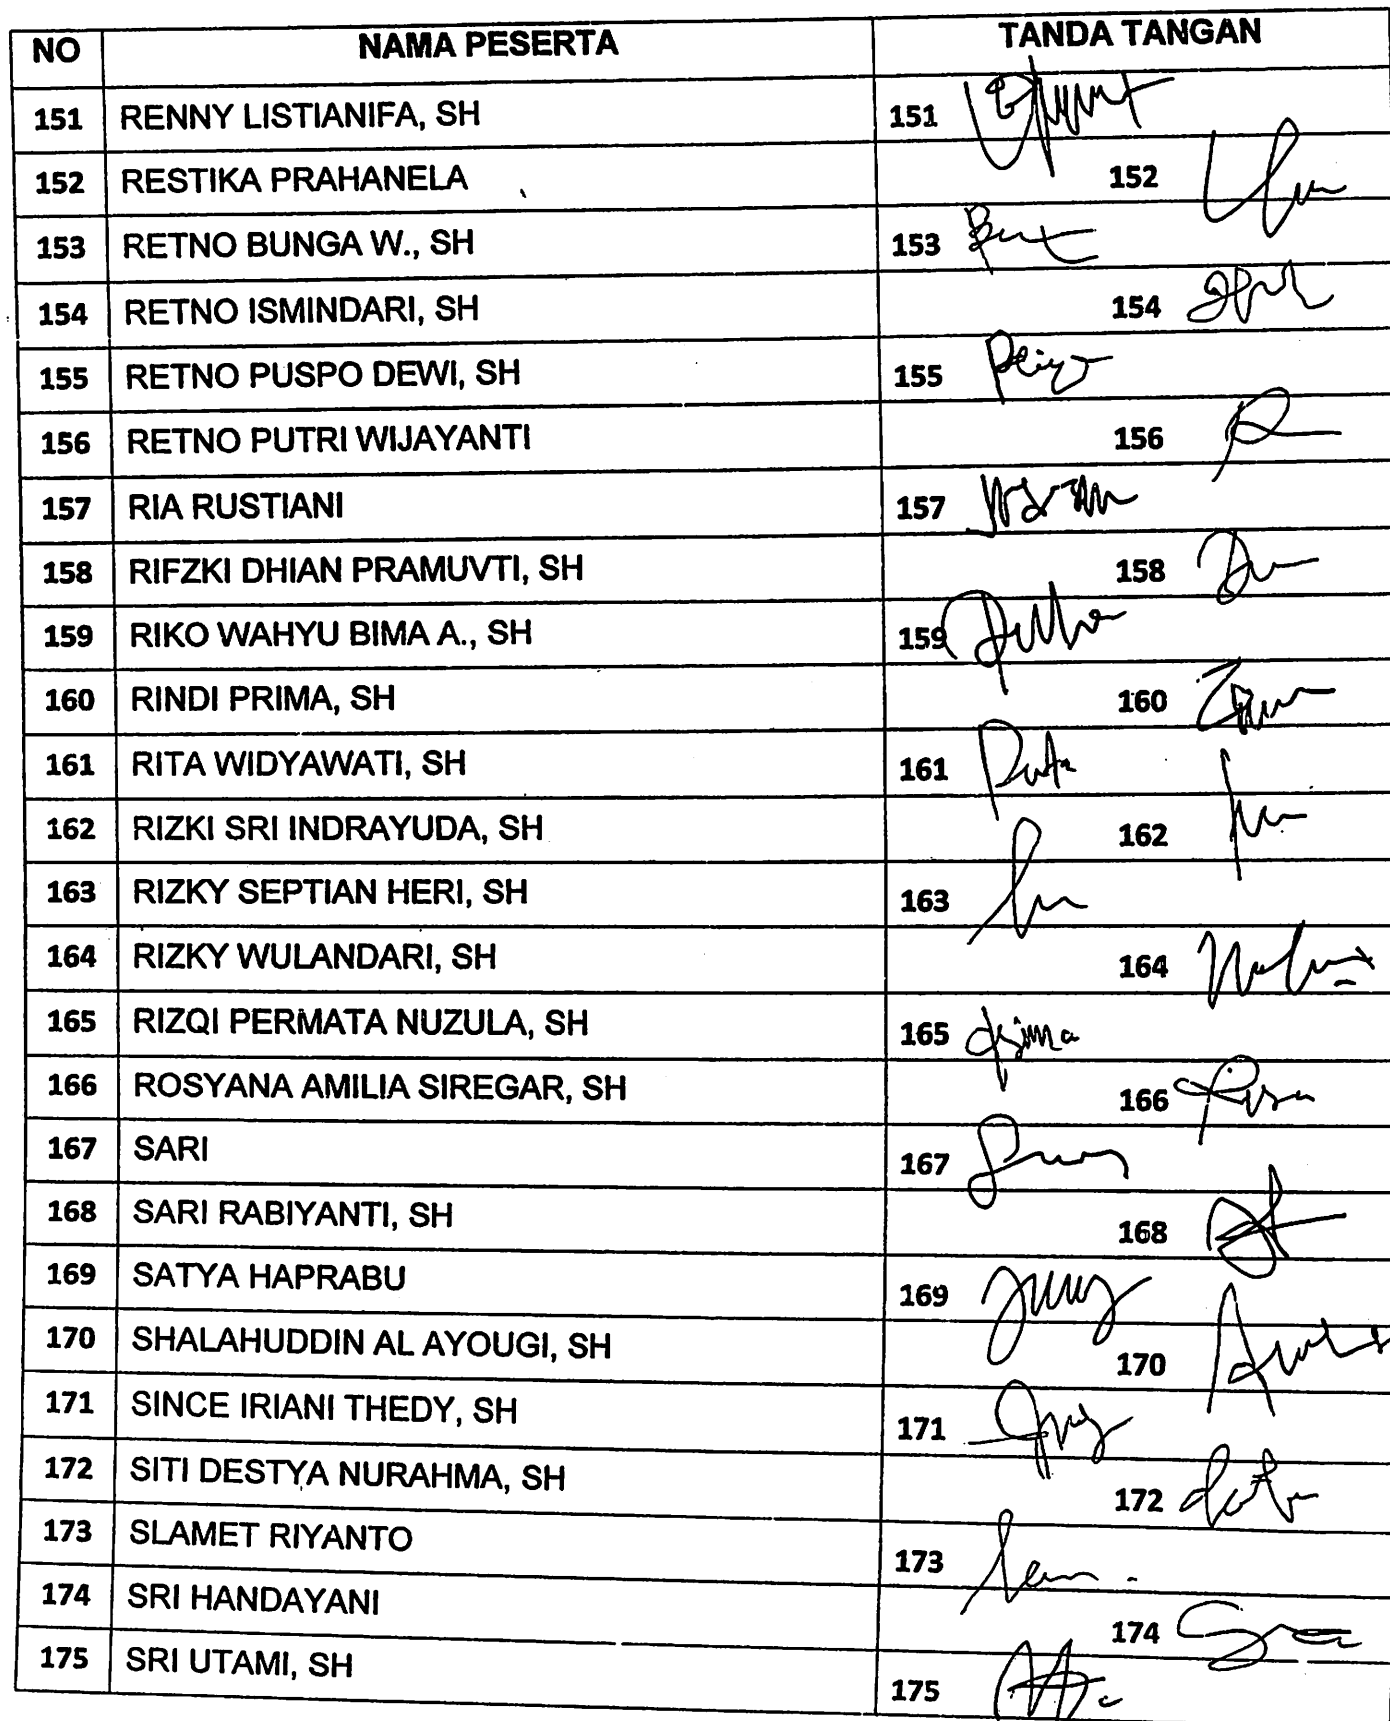 NO NAMA PESERTA TANDA TANGAN
151 RENNY LISTIANIFA, SH 151
152 RESTIKA PRAHANELA 152
153 RETNO BUNGA W., SH 153
154 RETNO ISMINDARI, SH 154
155 RETNO PUSPO DEWI, SH 155
156 RETNO PUTRI WIJAYANTI 156
157 RIA RUSTIANI 157
158 RIFZKI DHIAN PRAMUVTI, SH 158
159 RIKO WAHYU BIMA A., SH 159
160 RINDI PRIMA, SH 160
161 RITA WIDYAWATI, SH 161
162 RIZKI SRI INDRAYUDA, SH 162
163 RIZKY SEPTIAN HERI, SH 163
164 RIZKY WULANDARI, SH 164
165 RIZQI PERMATA NUZULA, SH 165
166 ROSYANA AMILIA SIREGAR, SH 166
167 SARI 167
168 SARI RABIYANTI, SH 168
169 SATYA HAPRABU 169
170 SHALAHUDDIN AL AYOUGI, SH 170
171 SINCE IRIANI THEDY, SH 171
172 SITI DESTYA NURAHMA, SH 172
173 SLAMET RIYANTO 173
174 SRI HANDAYANI 174
175 SRI UTAMI, SH 175